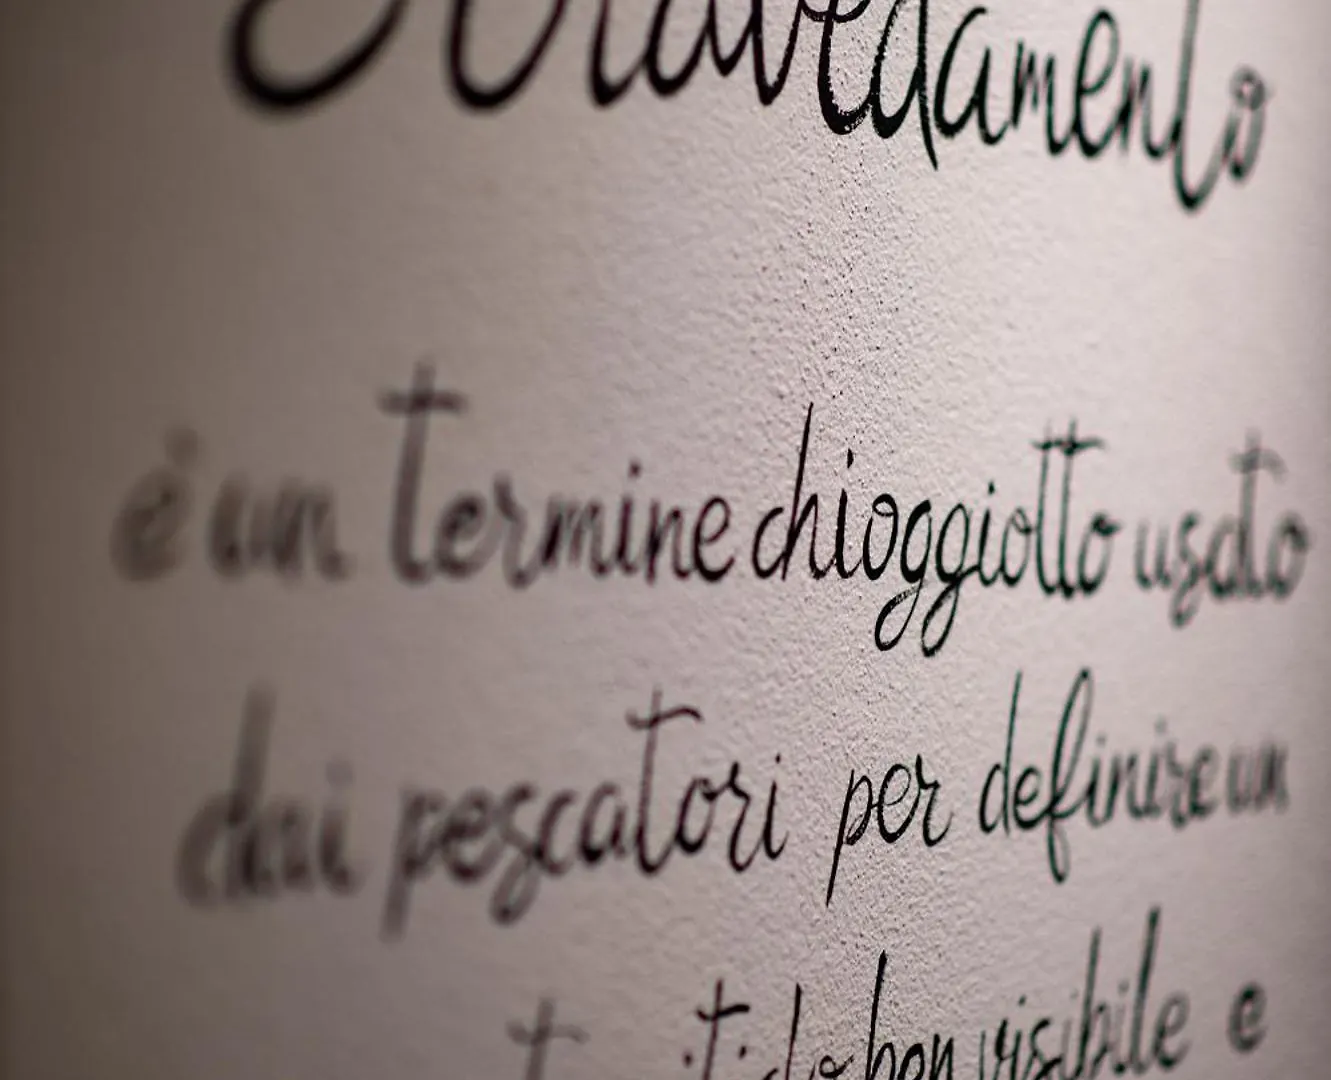 Stravedamento
è un termine chioggiotto usato
dai pescatori per definire un
ben visibile e